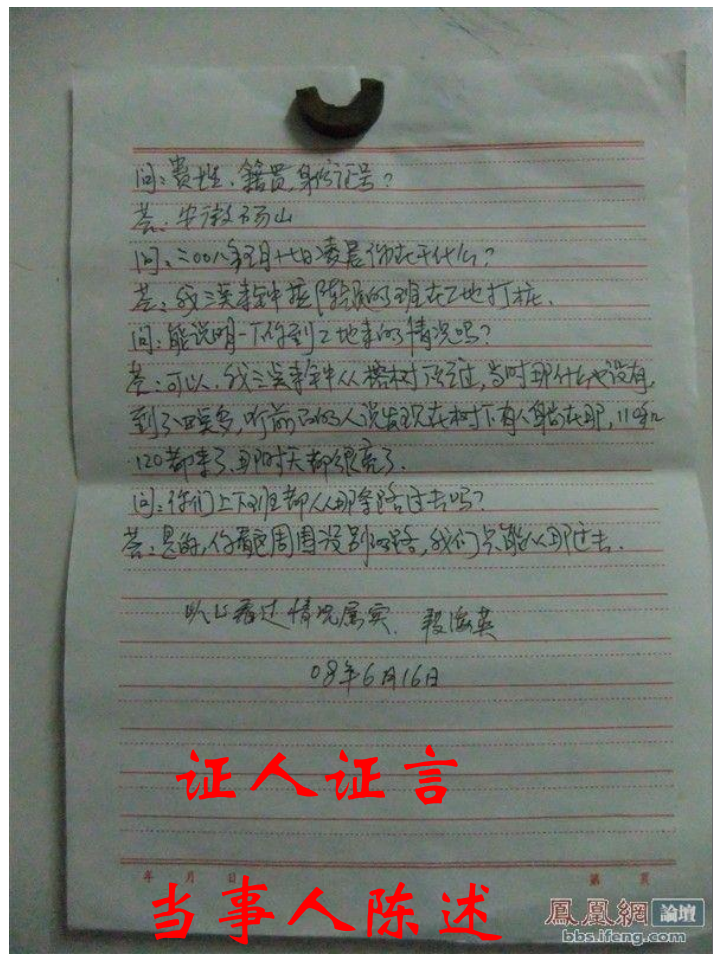 问：贵姓、籍贯，身份证号？
答：安徽砀山
问：二00八年五月十七日凌晨你在干什么？
答：我三点来钟接的班在工地打桩．
问：能说明一下你到工地来的情况吗？
答：可以．我三点来钟从榕树下经过，当时那什么也没有，
到了四点多，听前面的人说发现在树下有人躺在那，110和
120都来了，那时天都很亮了．
问：你们上下班都从那条路过去吗？
答：是的，你看这周围没别的路，我们只能从那过去．
以上看过情况属实． 段海英
08年6月16日
证人证言
年 月 日 第 页
当事人陈述
鳳凰網 論壇
bbs.ifeng.com